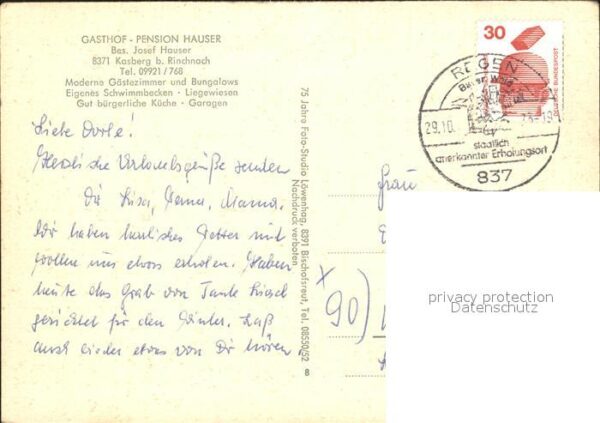 GASTHOF - PENSION HAUSER
Bes. Josef Hauser
8371 Kasberg b. Rinchnach
Tel. 09921 / 768
Moderne Gästezimmer und Bungalows
Eigenes Schwimmbecken - Liegewiesen
Gut bürgerliche Küche - Garagen
Liebe Dorle!
Herzliche Urlaubsgrüße senden
Dir Lisa, Mama.
Wir haben herrliches Wetter und
wollen uns etwas erholen. Haben
heute das Grab von Tante
gerichtet für den Winter. Laß
auch wieder etwas von Dir hören
75 Jahre Foto-Studio Löwenhag, 8391 Bischofsreut, Tel. 08550/52
Nachdruck verboten
8
30
DEUTSCHE BUNDESPOST
REGEN
Bayer. Wald
29.10.
staatlich
anerkannter Erholungsort
837
Frau
90)
privacy protection
Datenschutz